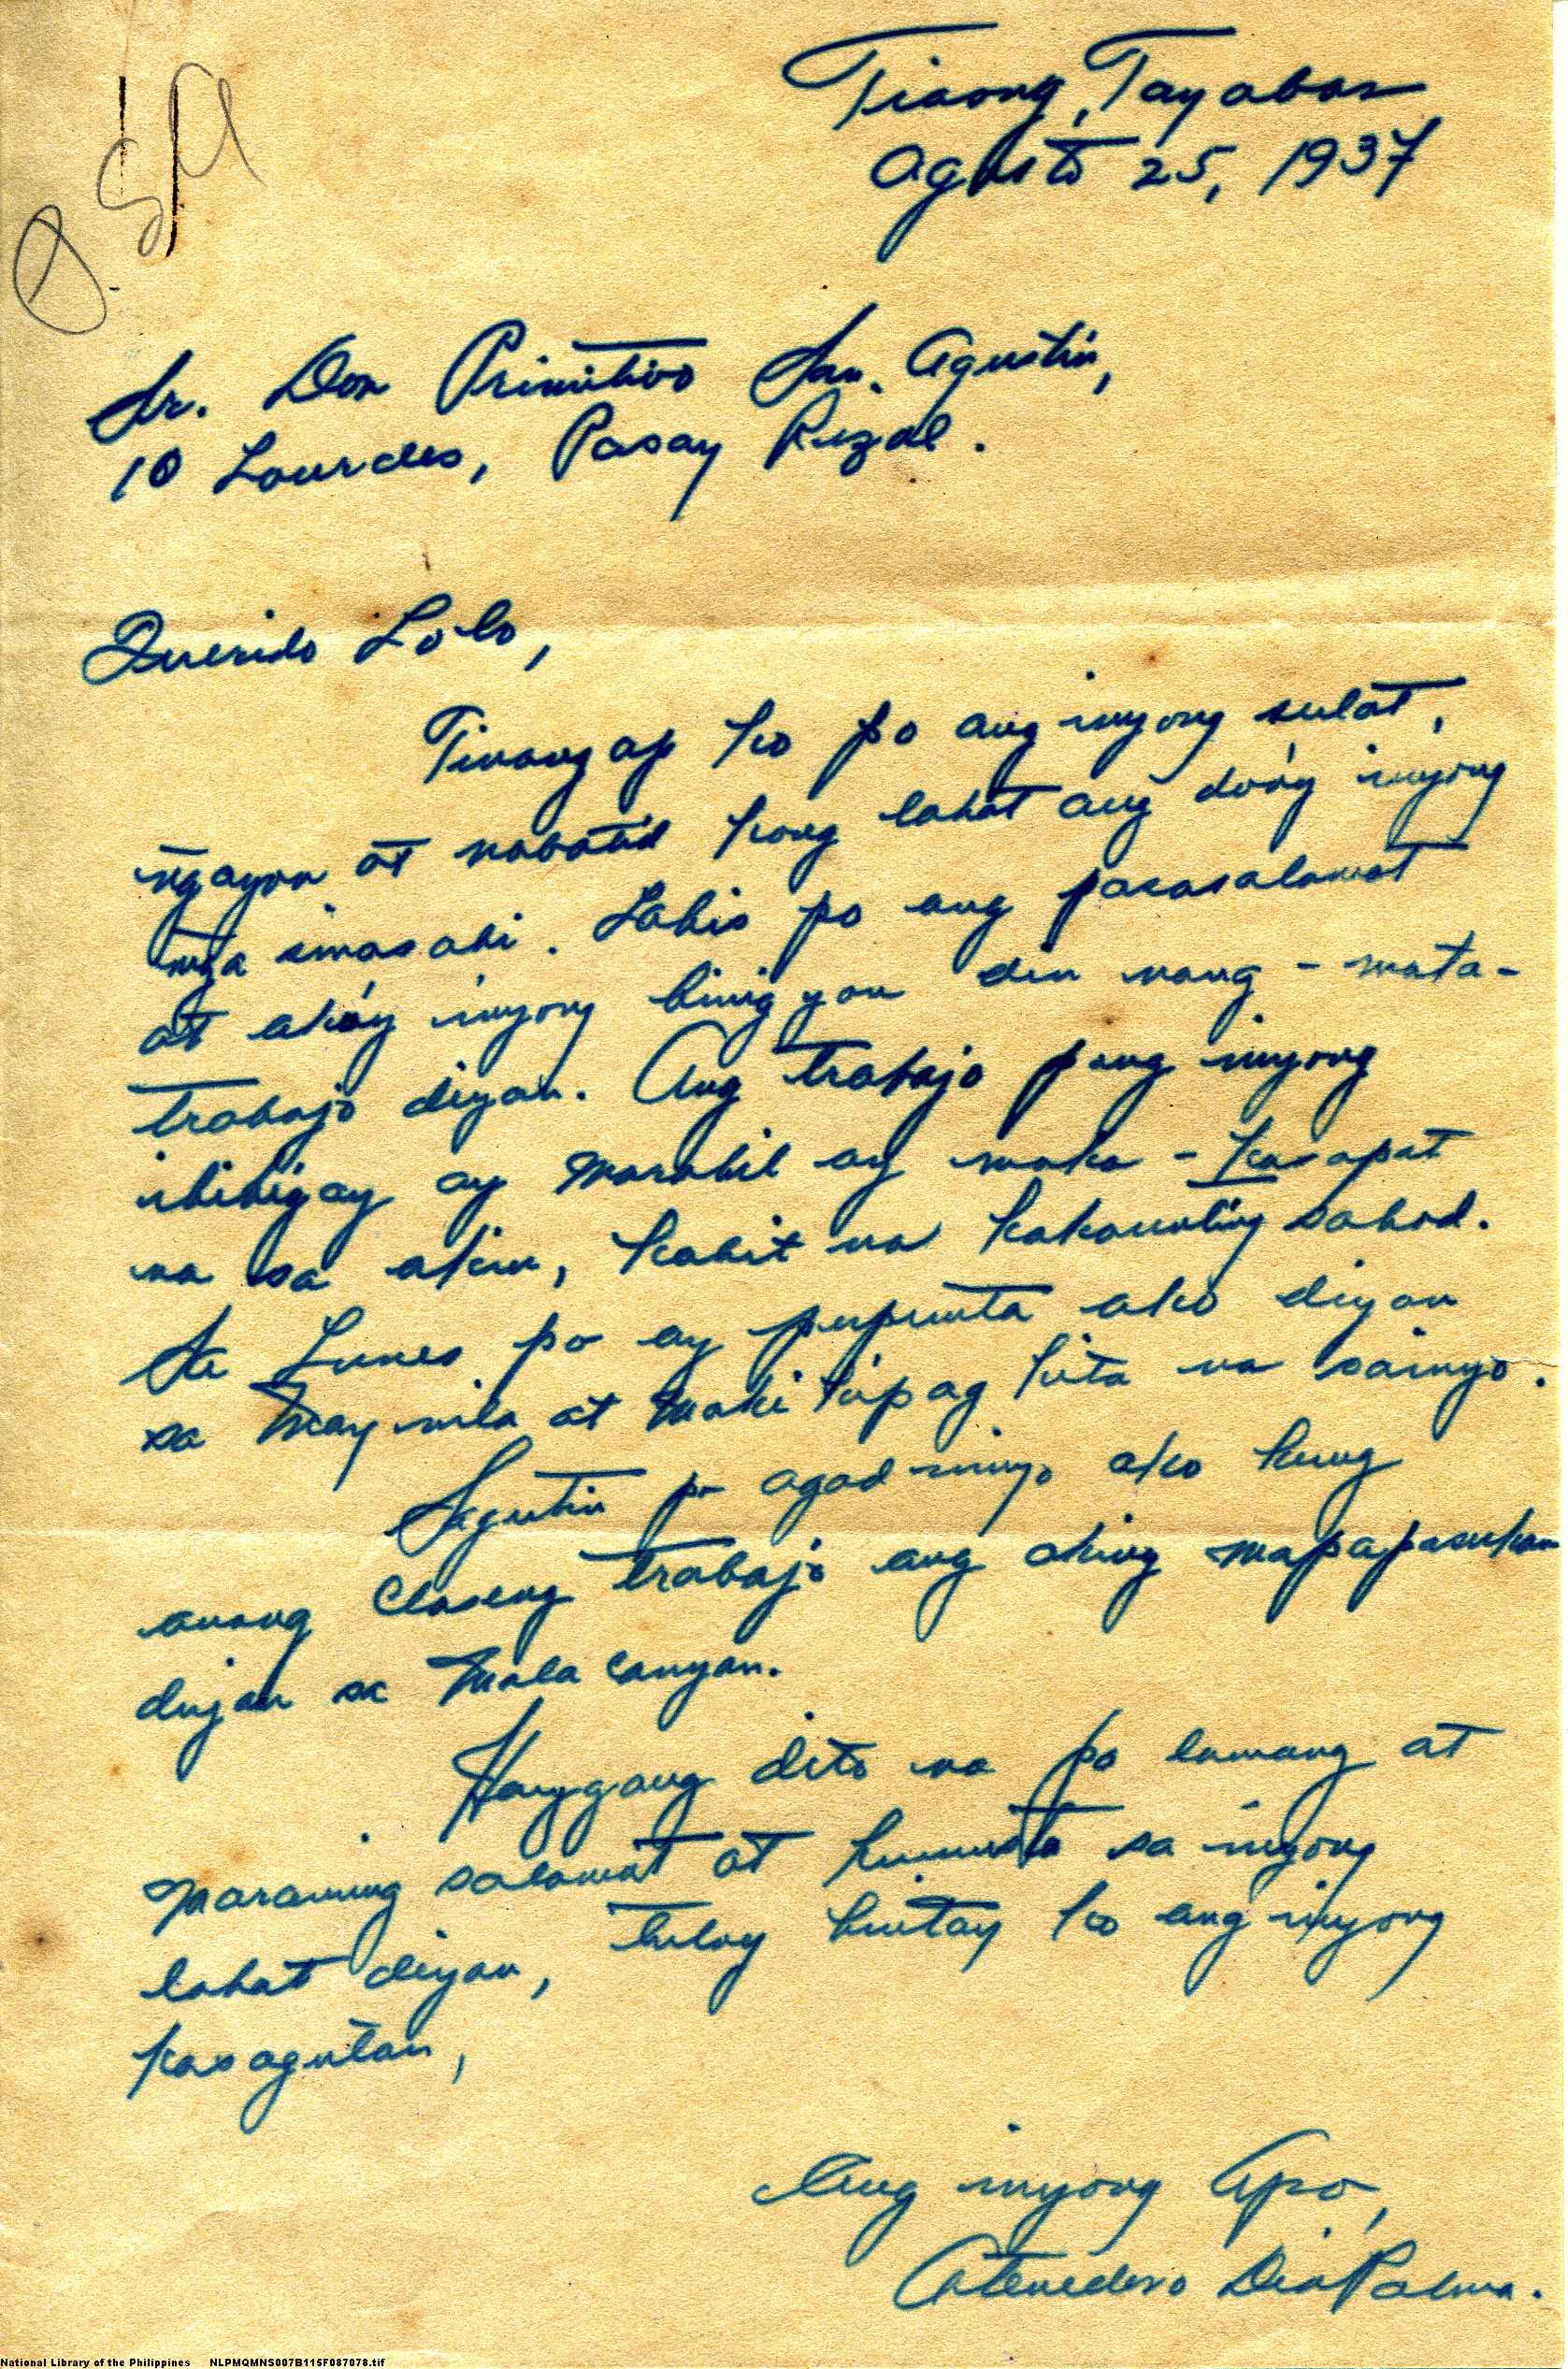 P. SA
Tiaong, Tayabas
Agosto 25, 1937
Sr. Don Primitivo San. Agustin,
10 Lourdes, Pasay Rizal.
Querido Lolo,
Tinangap ko po ang inyong sulat,
ngayon at nabatid kong lahat ang doo'y inyong
mga sinasabi. Labis po ang pasasalamat
at ako'y inyong binigyan din nang - mata-
trabajo diyan. Ang trabajo pang inyong
ibibigay ay marahil ay maka - kasapat
na sa akin, kahit na kakaunting sahod.
Sa Lunes po ay pupunta ako diyan
sa Maynila at makikipag kita na sainyo.
Sagutin po agad ninyo ako kung
anong claseng trabajo ang aking mapapasukan
diyan sa Malacanyan.
Hanggang dito na po lamang at
maraming salamat at kumusta sa inyong
lahat diyan, tuloy hintay ko ang inyong
kasagutan,
Ang inyong Apo,
National Library of the Philippines NLPMQMNS007B115F087078.tif